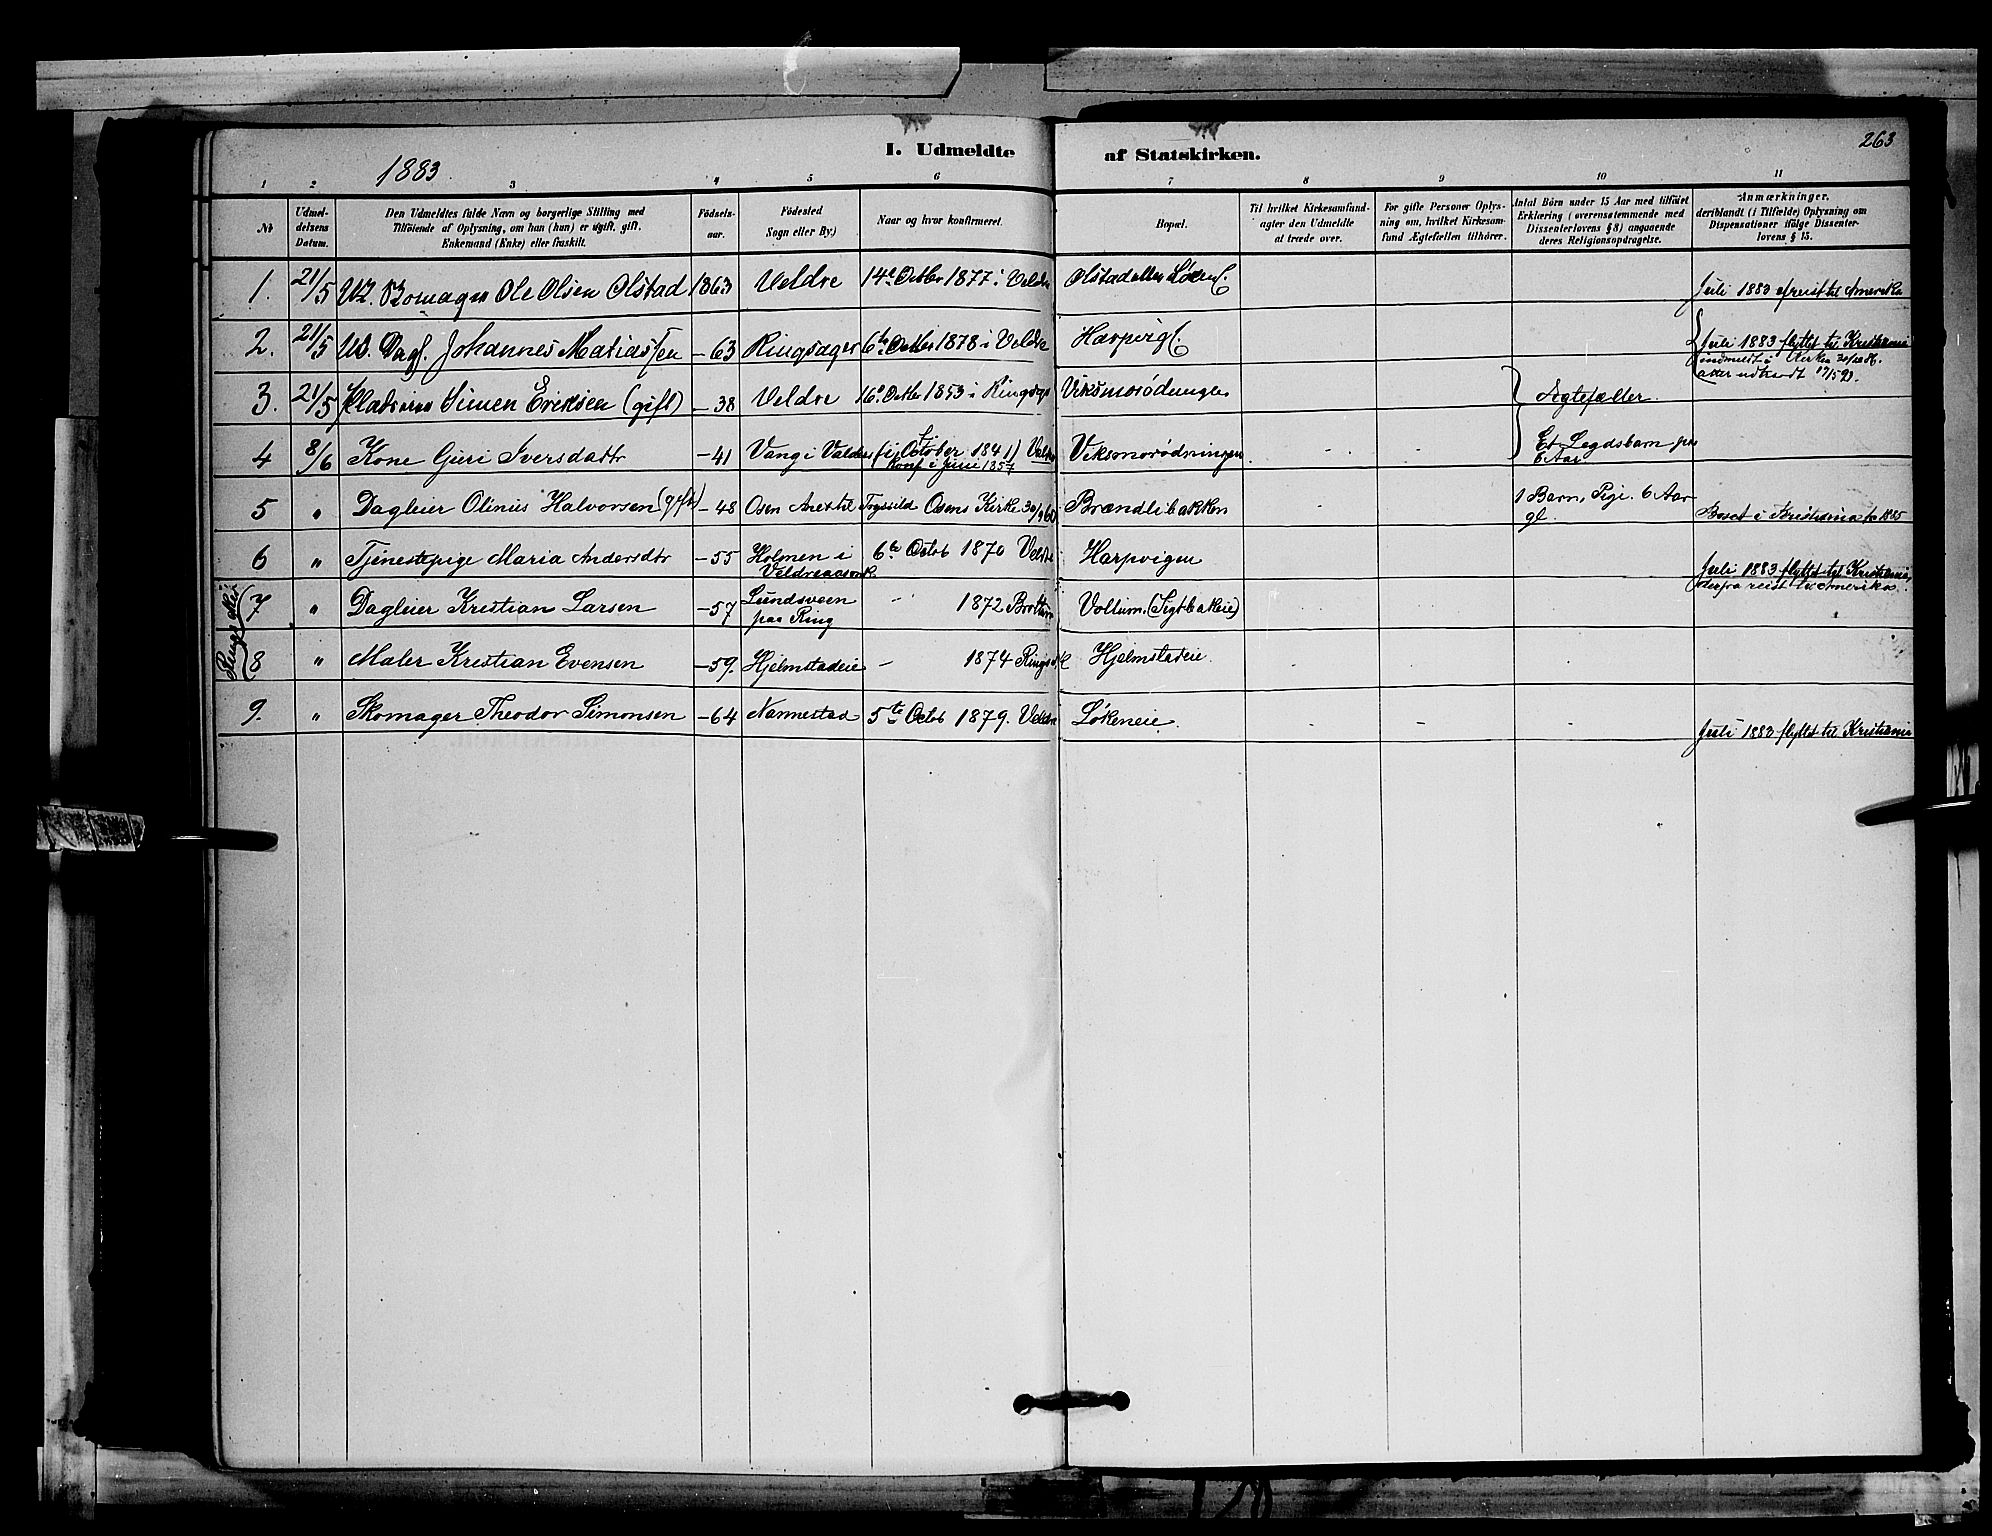 I. Udmeldte af Statskirken.
263
1883
1 2 3 4 5 6 7 8 9 10 11
№
Udmel-
delsens
Datum.
Den Udmeldtes fulde Navn og borgerlige Stilling med
Tilføiende af Oplysning, om han (hun) er ugift, gift,
Enkemand (Enke) eller fraskilt.
Fødsels-
aar.
Fødested
Sogn eller By.)
Naar og hvor konfirmeret.
Bopæl.
Til hvilket Kirkesamfund-
agter den Udmeldte
at træde over.
For gifte Personer Oplys-
ning om, hvilket Kirkesam-
fund Ægtefællen tilhører.
Antal Börn under 15 Aar med tilføiet
Erklæring (overensstemmende med
Dissenterlovens § 8) angaaende
deres Religionsopdragelse.
Anmærkninger,
deriblandt (i Tilfælde) Oplysning om
Dispensationer ifølge Dissenter-
lovens § 15.
1. 21/5 Ole Olsen Olstad 1863 Veldre 14de Octbr 1877 i Veldre Olstad eller Løken
Juli 1883 afreist til Amerika
2. 21/5 Dagl. Johannes Matiassen -63 Ringsager 6te Octbr 1878 i Veldre Harpvig
Juli 1883 flyttet til Kristiania
indmeldt i Kirken
atter udtraadt 17/5 90.
3. 21/5 Simen Eriksen (gift) -38 Veldre 16de Octbr 1853 i Ringsager Ægtefæller
4 8/6 Kone Guri Iversdattr -41 Vang i Valders (i October 1841) Valders Viksmorødningen Et Legdsbarn paa
Konf i Juni 1857 6 Aar
5 " Dagleier Olinus Halvorsen (gift) -48 Osen Anex til Trysild Osens Kirke 30/9 60 Brændlibakken 1 Barn, Pige. 6 Aar
gl. Bosat i Kristiania fra 1885
6 " Tjenestepige Maria Andersdtr -55 Holmen i 6te Octob 1870 Veldre Harpvigen
Veldreaasen
Juli 1883 flyttet til Kristiania,
derfra reist til Amerika.
Ringsaker
7 " Dagleier Kristian Larsen -57 Lundsveen - " 1872 Brøttum Vollum. (Sigtbakeie)
paa Ring
8 " Maler Kristian Evensen -59. Hjelmstadeie - 1874 Ringsak Hjelmstadeie.
9. " Skomager Theodor Simonsen -64 Nannestad 5te Octob 1879. Veldre Løkeneie.
Juli 1883 flyttet til Kristiania